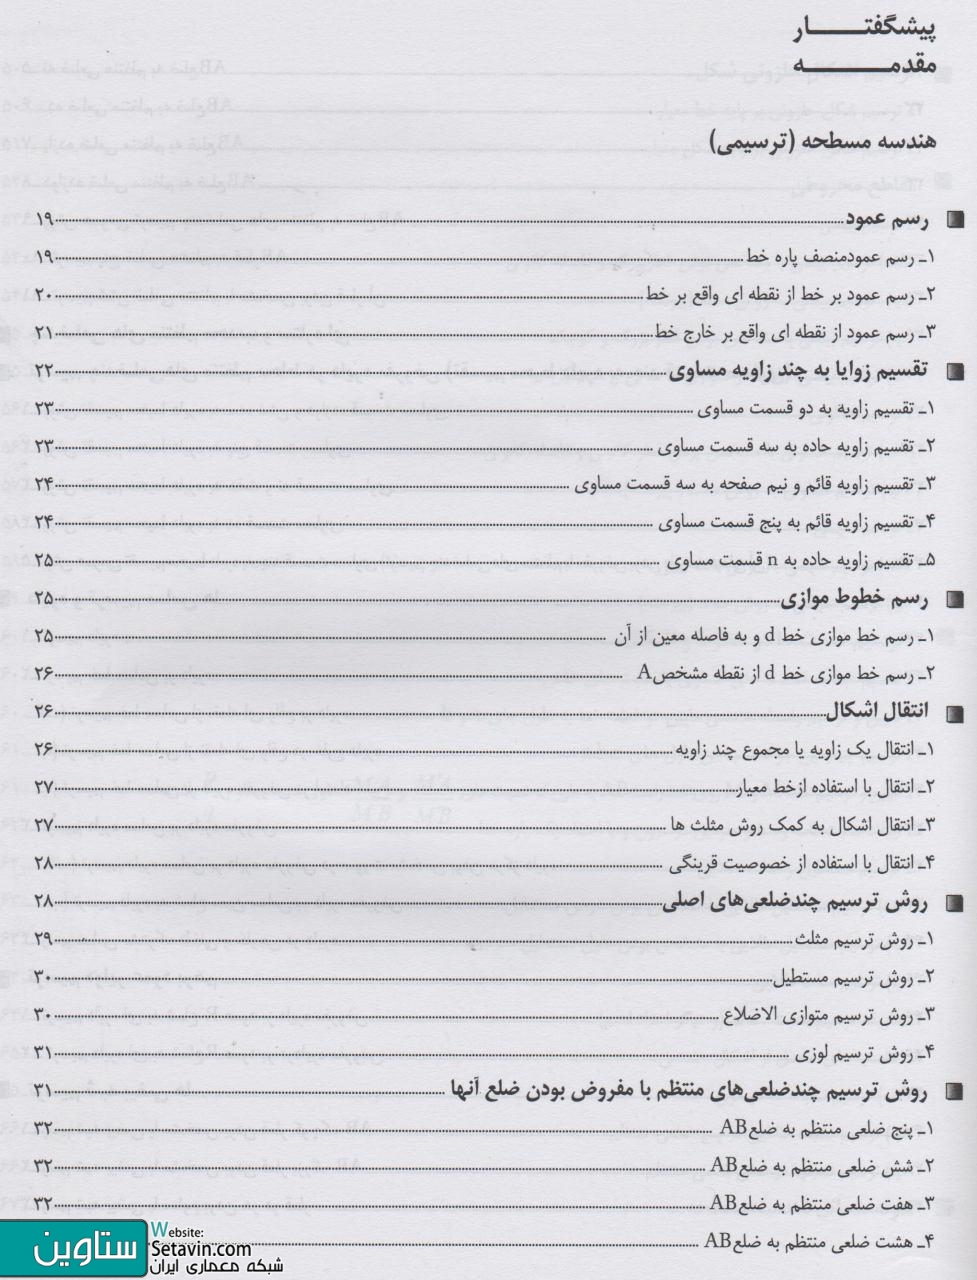 پیشگفتـــــــار
مقدمـــــــــــه
هندسه مسطحه (ترسیمی)
رسم عمود ۱۹
۱ـ رسم عمودمنصف پاره خط ۱۹
۲ـ رسم عمود بر خط از نقطه ای واقع بر خط ۲۰
۳ـ رسم عمود از نقطه ای واقع بر خارج خط ۲۱
تقسیم زوایا به چند زاویه مساوی ۲۲
۱ـ تقسیم زاویه به دو قسمت مساوی ۲۳
۲ـ تقسیم زاویه حاده به سه قسمت مساوی ۲۳
۳ـ تقسیم زاویه قائم و نیم صفحه به سه قسمت مساوی ۲۴
۴ـ تقسیم زاویه قائم به پنج قسمت مساوی ۲۴
۵ـ تقسیم زاویه حاده به n قسمت مساوی ۲۵
رسم خطوط موازی ۲۵
۱ـ رسم خط موازی خط d و به فاصله معین از آن ۲۵
۲ـ رسم خط موازی خط d از نقطه مشخص A ۲۶
انتقال اشکال ۲۶
۱ـ انتقال یک زاویه یا مجموع چند زاویه ۲۶
۲ـ انتقال با استفاده ازخط معیار ۲۷
۳ـ انتقال اشکال به کمک روش مثلث ها ۲۷
۴ـ انتقال با استفاده از خصوصیت قرینگی ۲۸
روش ترسیم چندضلعی‌های اصلی ۲۸
۱ـ روش ترسیم مثلث ۲۹
۲ـ روش ترسیم مستطیل ۳۰
۳ـ روش ترسیم متوازی الاضلاع ۳۰
۴ـ روش ترسیم لوزی ۳۱
روش ترسیم چندضلعی‌های منتظم با مفروض بودن ضلع آنها ۳۱
۱ـ پنج ضلعی منتظم به ضلع AB ۳۲
۲ـ شش ضلعی منتظم به ضلع AB ۳۲
۳ـ هفت ضلعی منتظم به ضلع AB ۳۲
۴ـ هشت ضلعی منتظم به ضلع AB
ستاوین
Website:
Setavin.com
شبکه معماری ایران